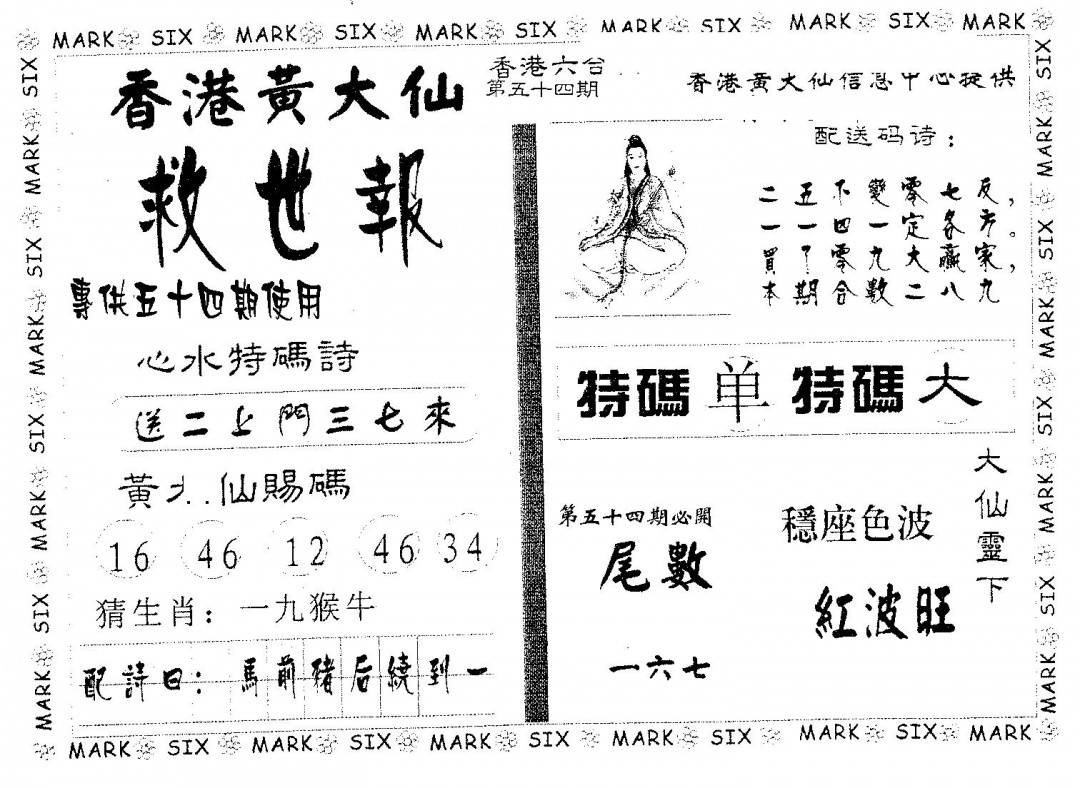 MARK SIX MARK SIX MARK SIX MARK SIX MARK SIX MARK
香港黃大仙
救世報
專供五十四期使用
心水特碼詩
送二上門三七來
黃大仙賜碼
16 46 12 46 34
猜生肖：一九猴牛
配詩曰：馬前豬后繞到一
香港六合
第五十四期
香港黃大仙信息中心提供
配送码诗：
二五不變零七反，
一一四一定各方。
買了零九大贏家，
本期合數二八九
特碼 单 特碼 大
第五十四期必開
尾數
一六七
穩座色波
紅波旺
大仙靈下
MARK SIX MARK SIX MARK SIX MARK SIX MARK SIX MARK
SIX MARK SIX MARK SIX MARK SIX MARK
SIX MARK SIX MARK SIX MARK SIX MARK